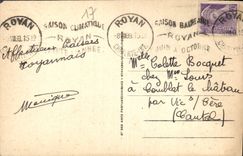 17
ROYAN
SAISON CLIMATIQUE
ROYAN
TOUTE L'ANNÉE
ROYAN
SAISON BALNÉAIRE
ROYAN
JUIN À OCTOBRE
Affectueux baisers
royannais
Monique
Melle Colette Bocquet
chez Mme Louis
à Coublot le château
par Vic s/ Cère
(Cantal)